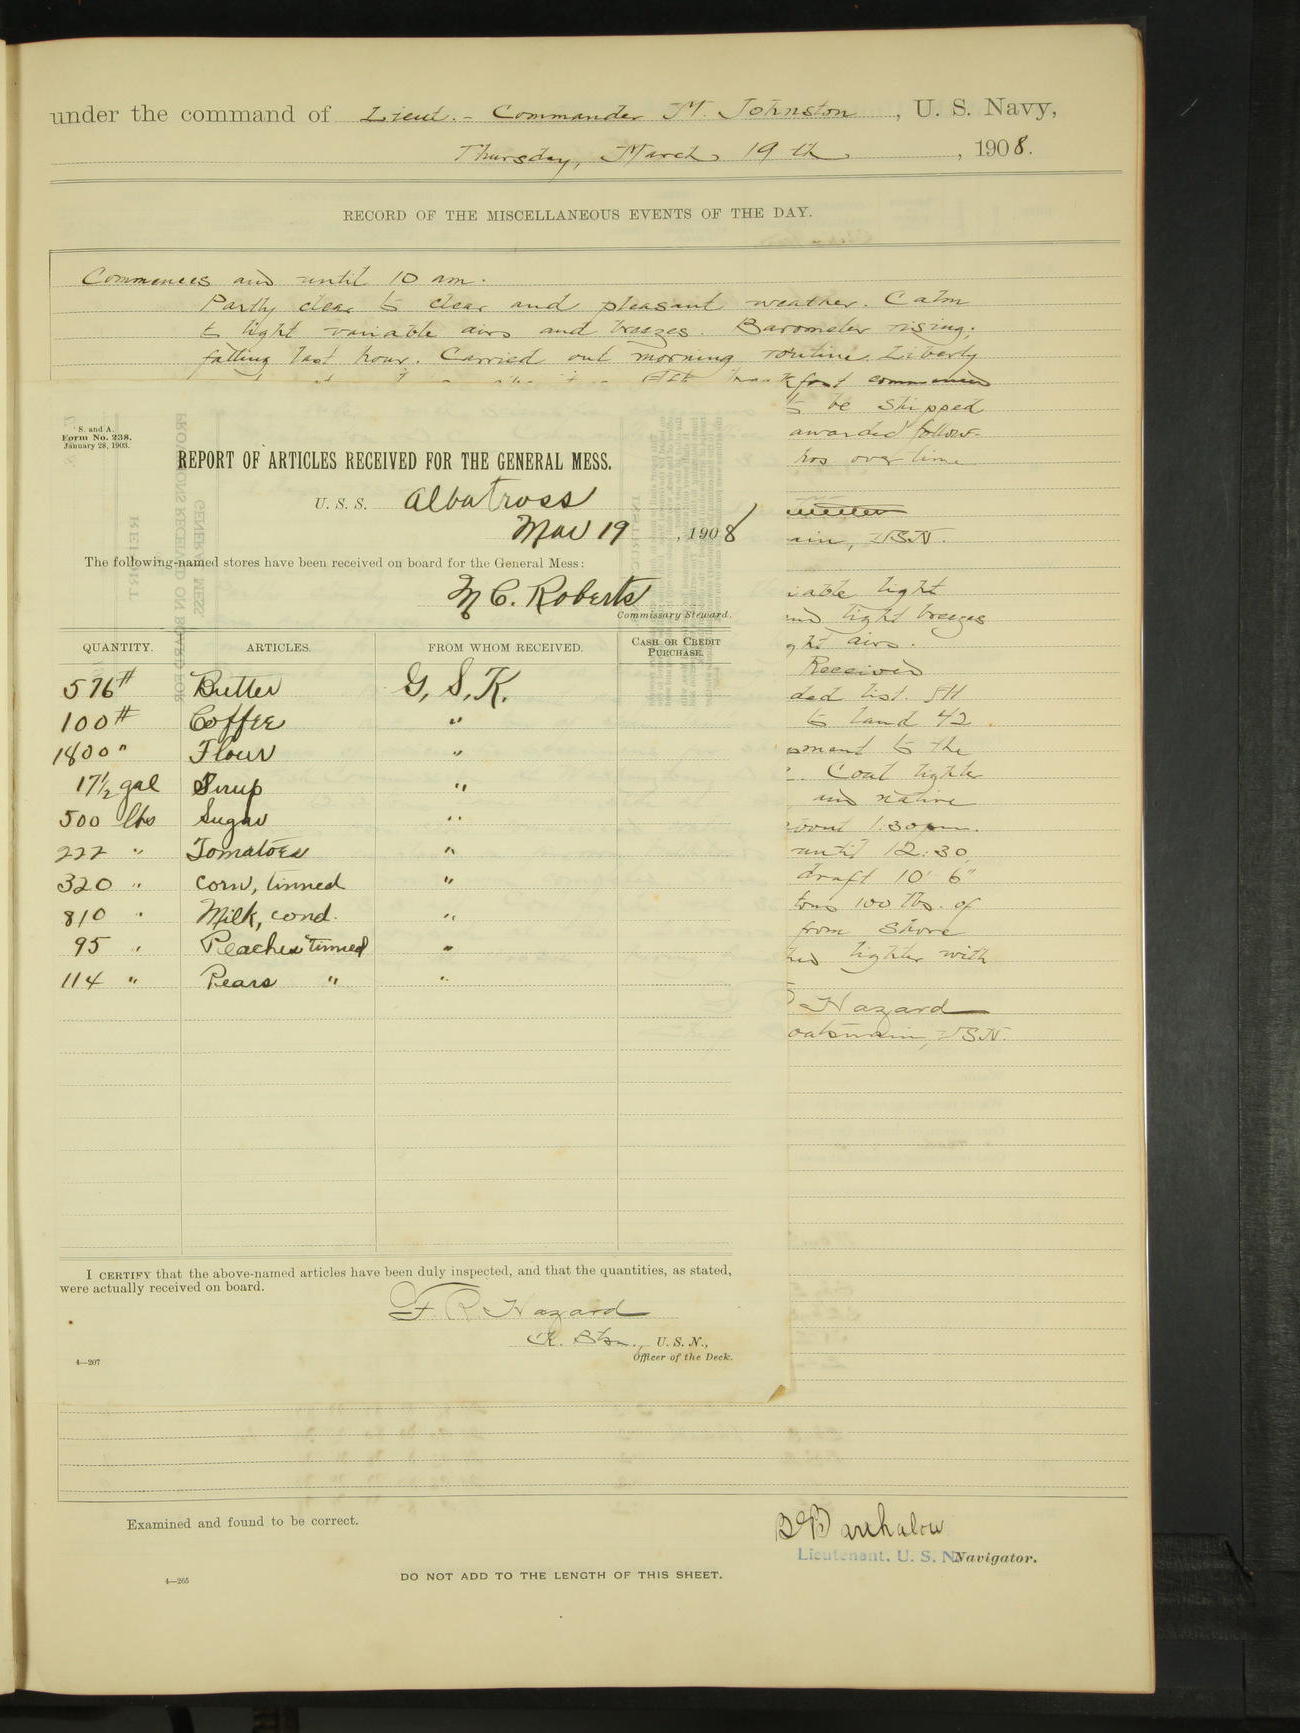 under the command of Lieut.- Commander M. Johnston, U. S. Navy,
Thursday, March 19th, 1908.
RECORD OF THE MISCELLANEOUS EVENTS OF THE DAY.
Commences and until 10 am.
Partly clear to clear and pleasant weather. Calm
to light variable airs and breezes. Barometer rising;
falling last hour. Carried out morning routine. Liberty
S. and A.
Form No. 238.
January 28, 1903.
REPORT OF ARTICLES RECEIVED FOR THE GENERAL MESS.
U. S. S. Albatross
Mar 19, 1908
The following-named stores have been received on board for the General Mess:
N C. Roberts
Commissary Steward.
QUANTITY. ARTICLES. FROM WHOM RECEIVED. CASH OR CREDIT PURCHASE.
576# Butter G. S. K.
100# Coffee "
1800 " Flour "
17½ gal Sirup "
500 lbs Sugar "
222 " Tomatoes "
320 " Corn, tinned "
810 " Milk, cond. "
95 " Peaches tinned "
114 " Pears " "
I CERTIFY that the above-named articles have been duly inspected, and that the quantities, as stated,
were actually received on board.
F. R. Hazard
Ch. Btsn., U. S. N.,
Officer of the Deck.
4—207
to be shipped
awarded follow-
has over time
ain, USN.
iable light
and light breezes
ght airs.
Received
ded list.
to land 42
ment to the
Coal lighter
and native
bout 1:30 pm.
until 12:30
draft 10' 6"
tons 100 lbs. of
from shore
lighter with
Hazard
oatswain, USN.
Examined and found to be correct.
Lieutenant. U. S. N. Navigator.
4—265
DO NOT ADD TO THE LENGTH OF THIS SHEET.